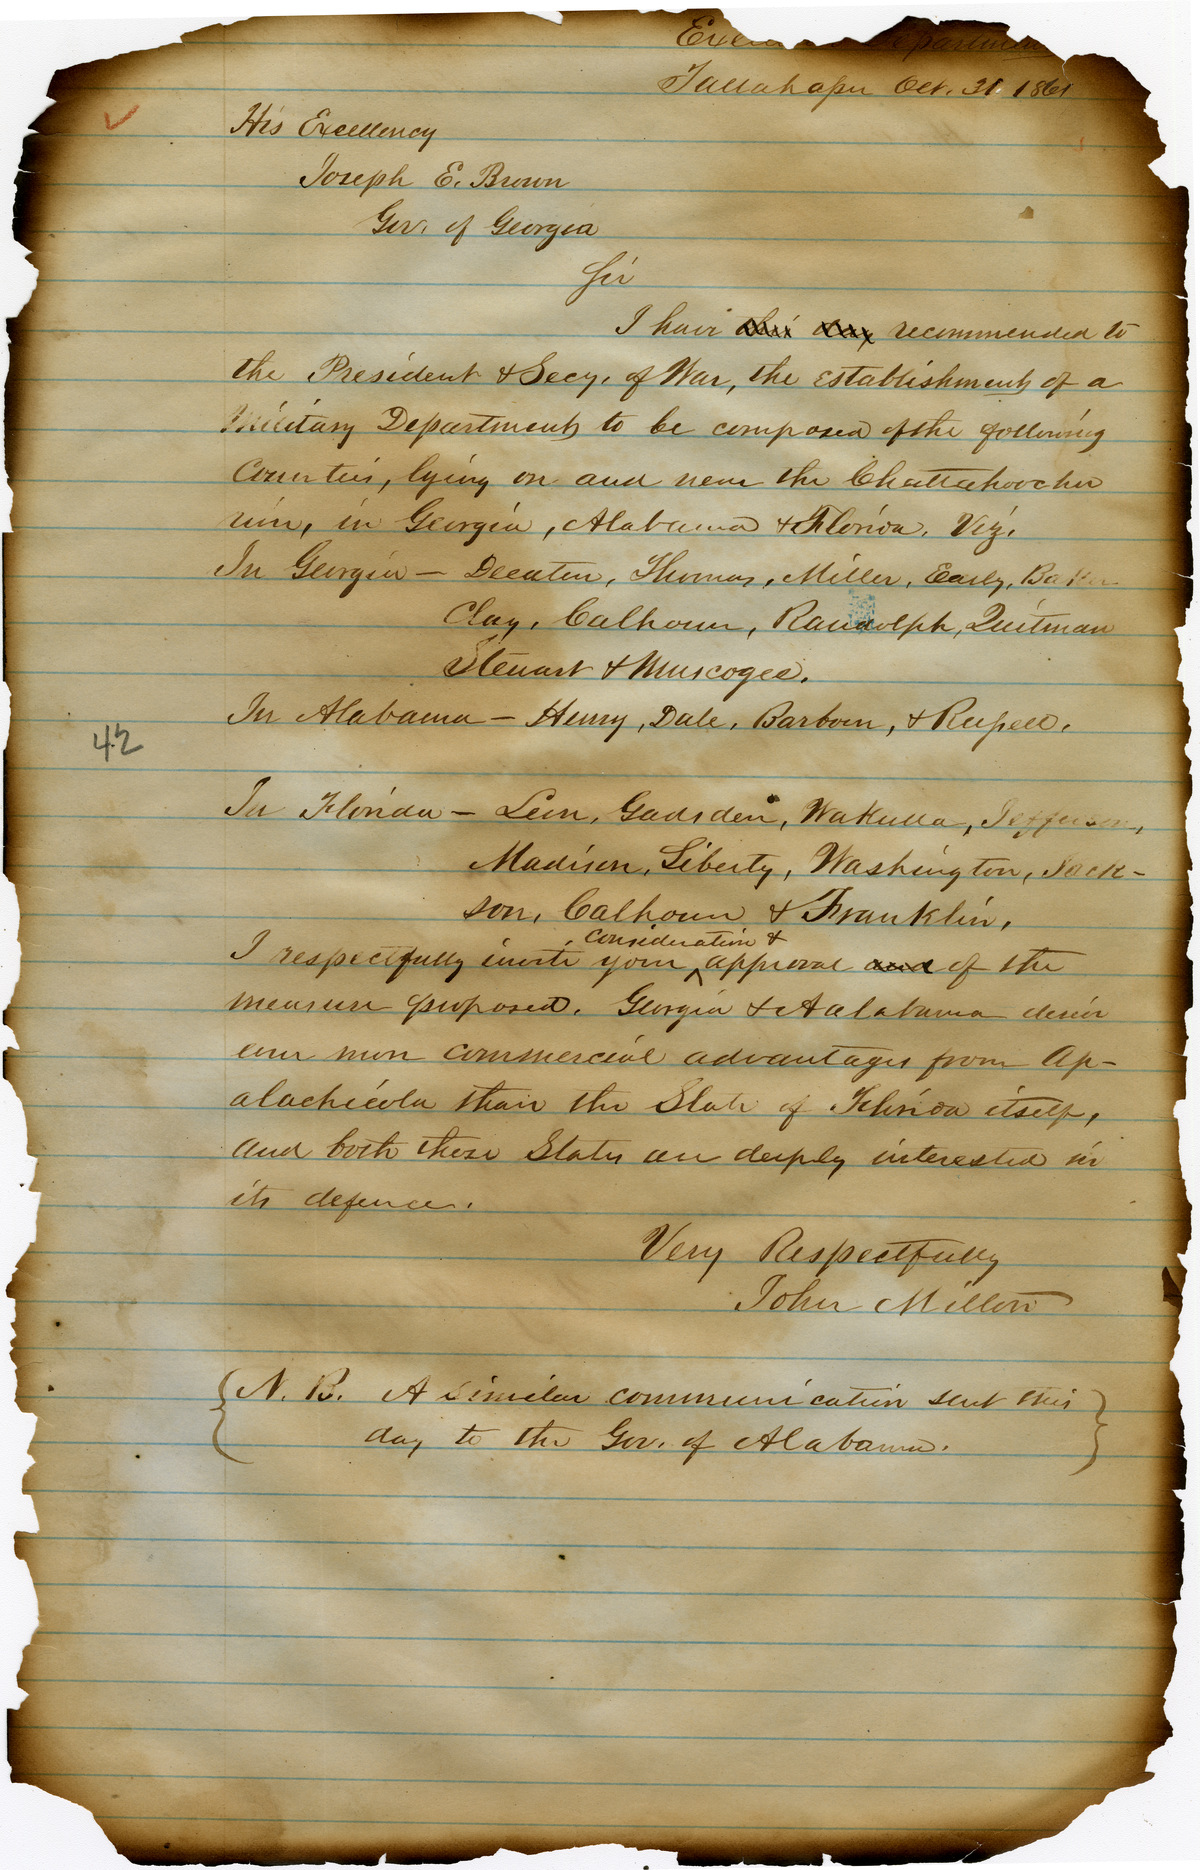 Executive Department
Tallahassee Oct. 31. 1861
His Excellency
Joseph E. Brown
Gov. of Georgia
Sir
I have this day recommended to
the President & Secy. of War, the establishment of a
Military Department to be composed of the following
Counties, lying on and near the Chattahoochee
river, in Georgia, Alabama & Florida. Viz.
In Georgia — Decatur, Thomas, Miller, Early, Baker
Clay, Calhoun, Randolph, Quitman
Stewart & Muscogee.
In Alabama — Henry, Dale, Barbour, & Russell.
42
In Florida — Leon, Gadsden, Wakulla, Jefferson,
Madison, Liberty, Washington, Jack-
son, Calhoun & Franklin.
consideration &
I respectfully invite your approval and of the
measure proposed. Georgia & Aalabama derive
even more commercial advantages from Ap-
alachicola than the State of Florida itself,
and both those States are deeply interested in
its defence.
Very Respectfully
John Milton
N. B. A similar communication sent this
day to the Gov. of Alabama.